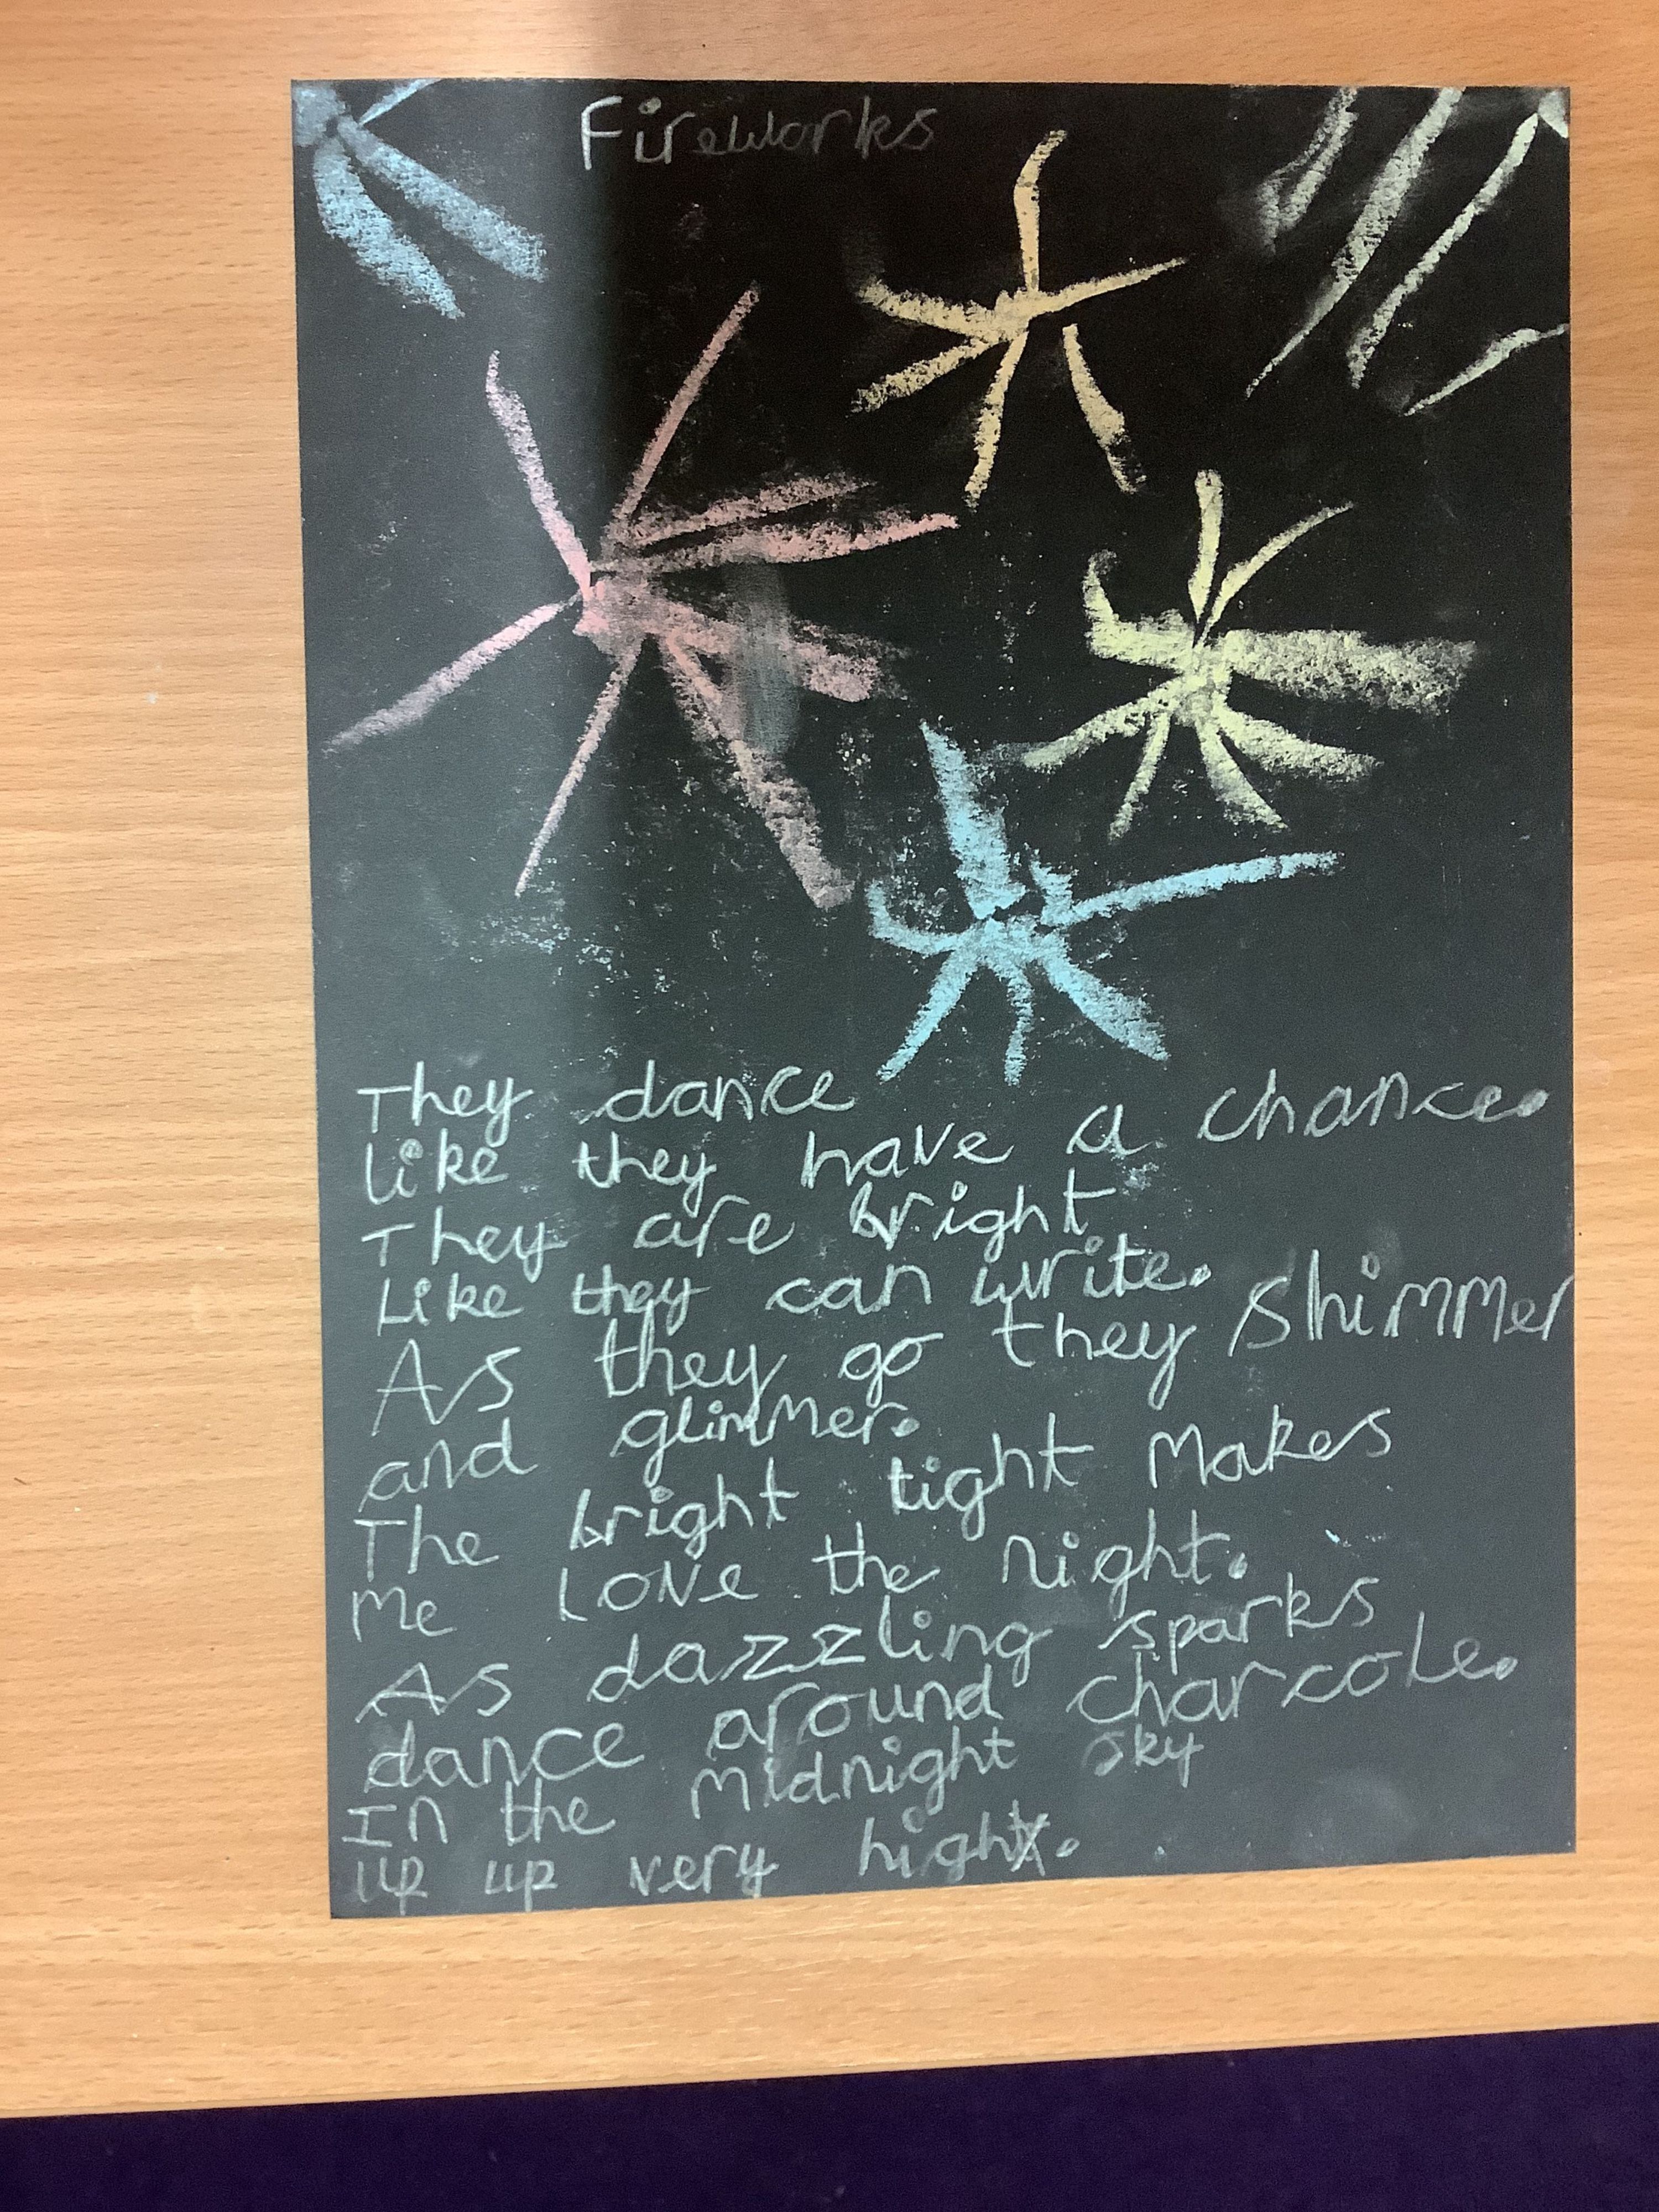 Fireworks
They dance
like they have a chance.
They are bright
Like they can write.
As they go they shimmer
and glimmer.
The bright light makes
me love the night.
As dazzling sparks
dance around charcole.
In the midnight sky
up up very high.